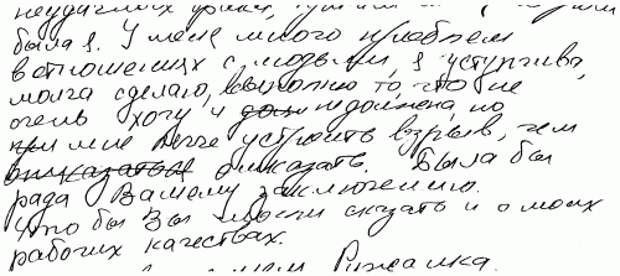 неудачных
была я. У меня много проблем
в отношениях с людьми, я уступчива,
молча сделаю, выполню то, что не
очень хочу и недолжена, но
мне легче устроить взрыв, чем
отказать. Была бы
рада Вашему заключению.
Что бы Вы могли сказать и о моих
рабочих качествах.
Рижанка.